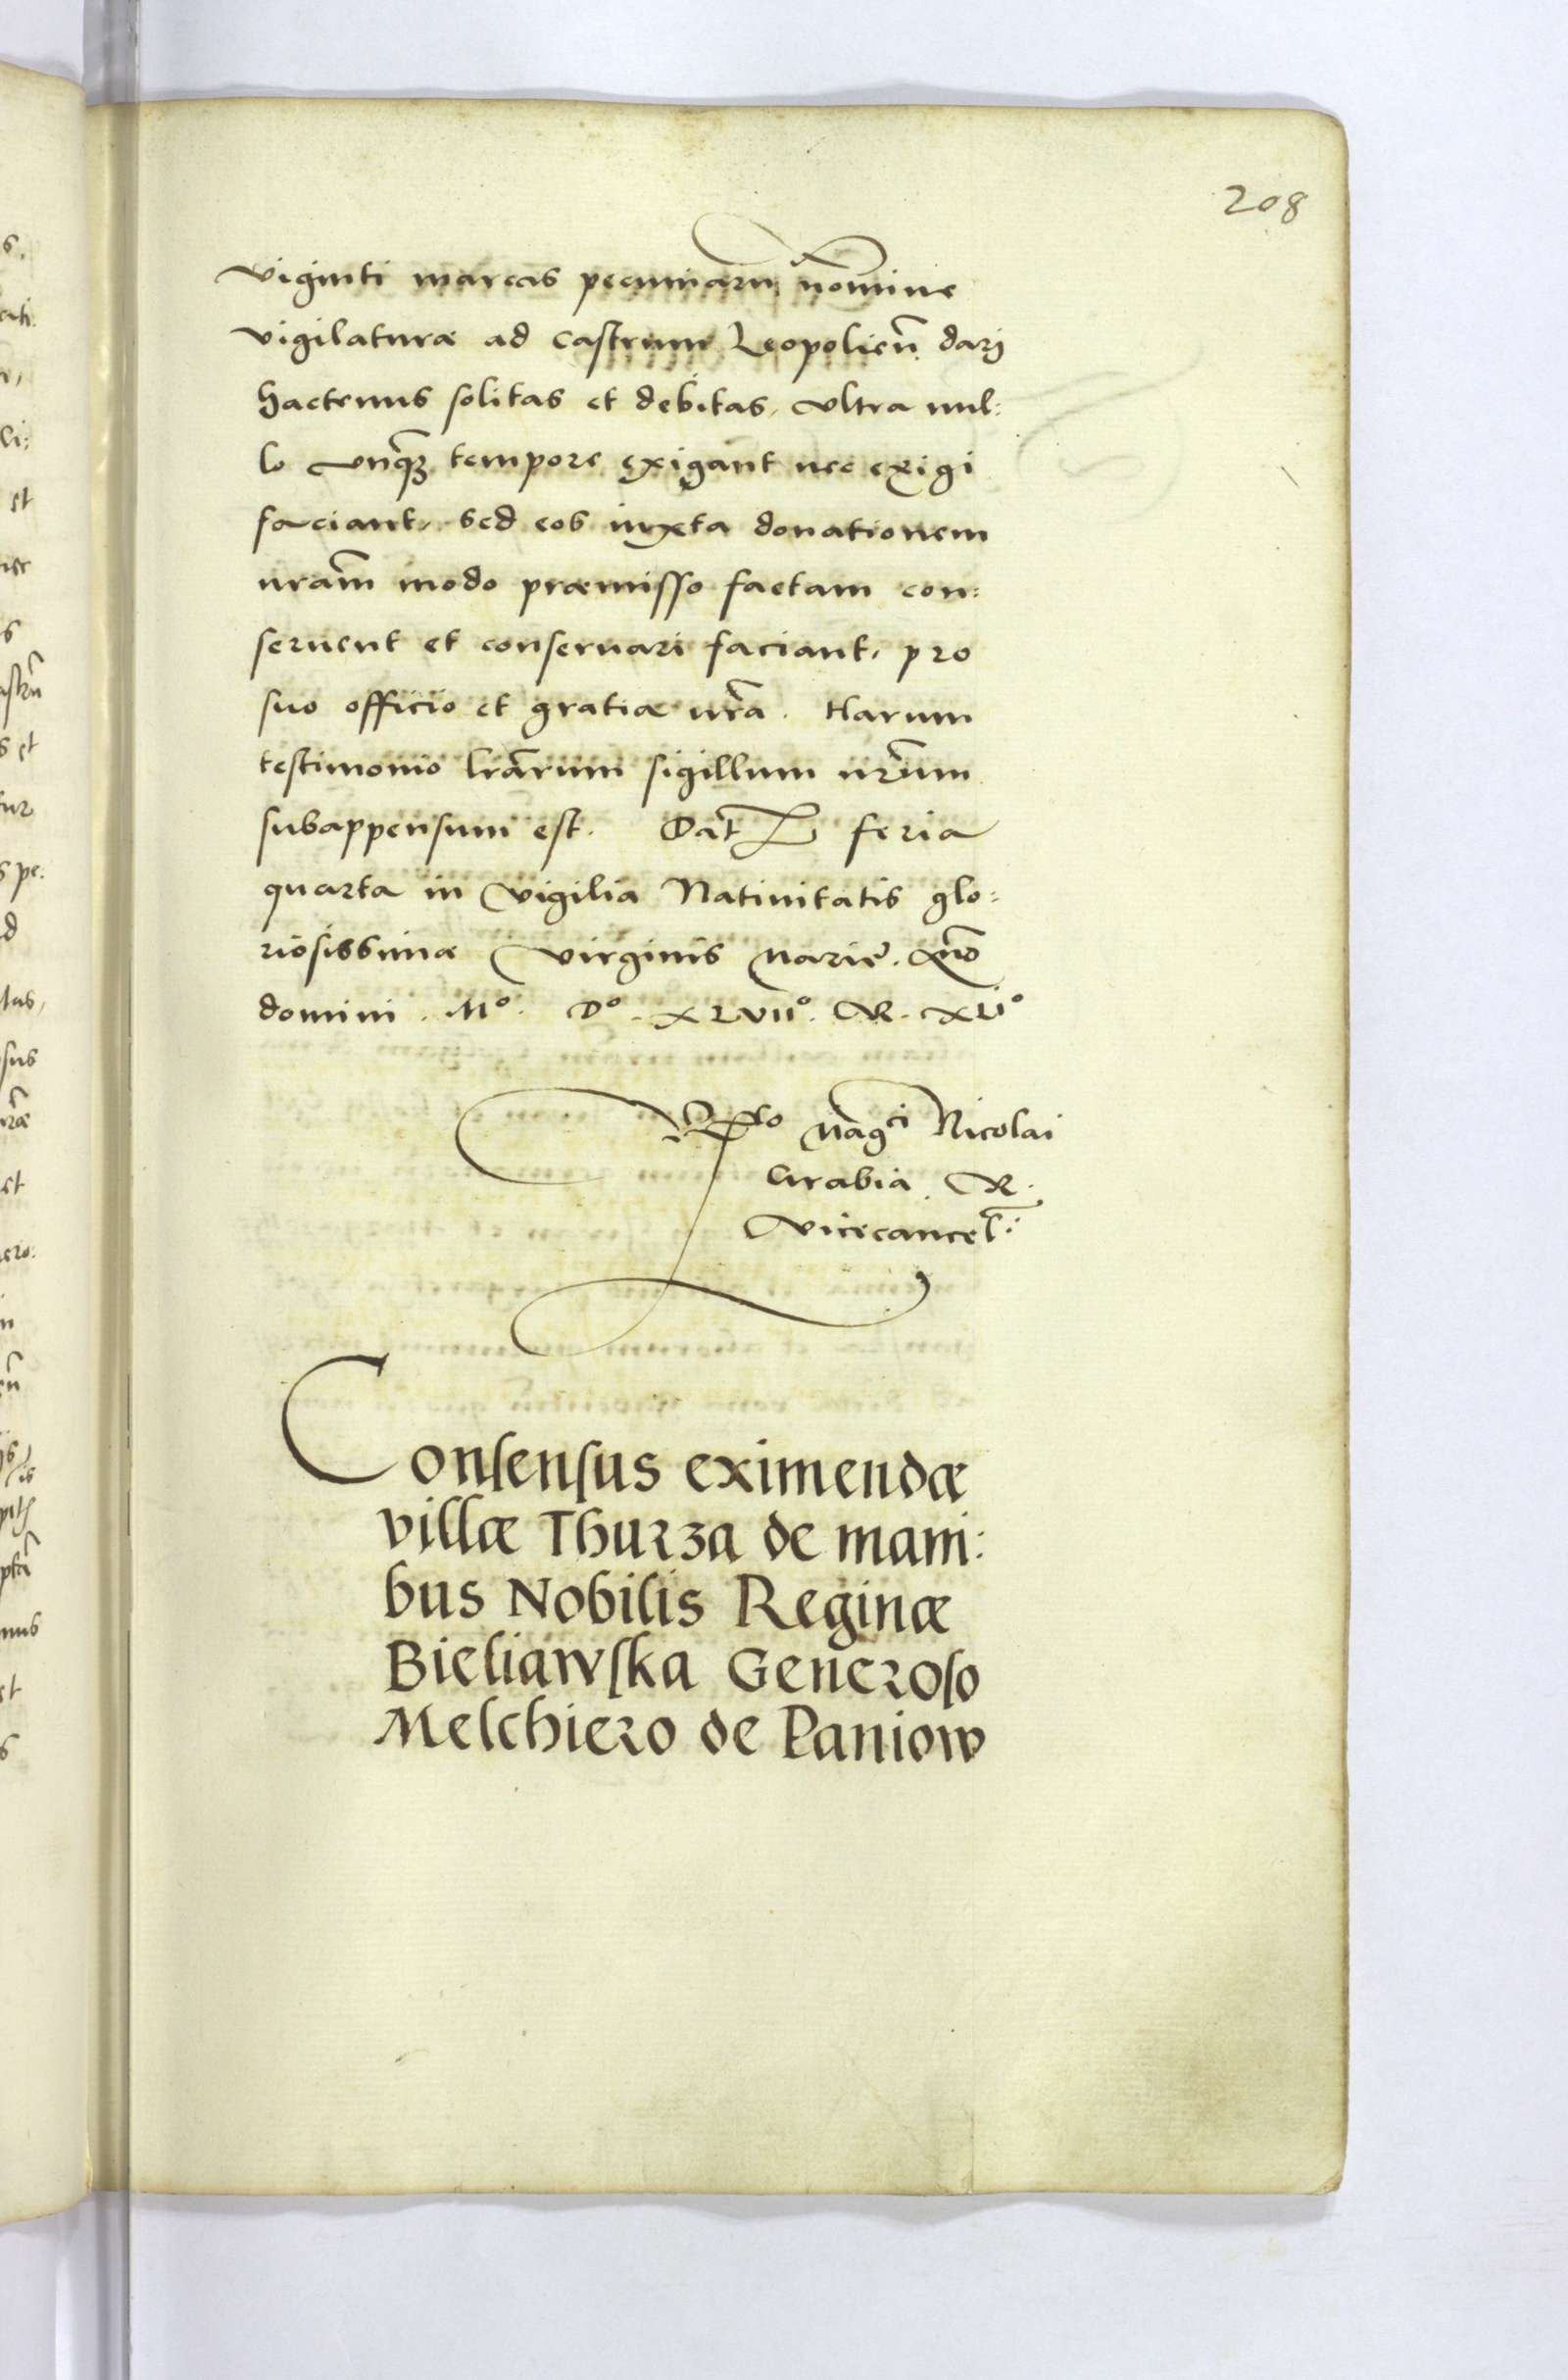 208
viginti marcas pecuniaru nomine
vigilaturæ ad castrum Leopolien̄ dari
hactenus solitas et debitas, vltra nul:
lo vnq̃ȝ tempore exigant nec exigi
faciant, sed eos iuxta donationem
nrãm modo præmisso factam con:
seruent et conseruari faciant, pro
suo officio et gratiæ nrã. Harum
testimonio lrãrum sigillum nrũm
subappensum est. Dat̃ feria
quarta in vigilia Natiuitatis glo:
riosissimæ Virginis Marie. Anno
domini. Mº. Dº. XLVIIº. R. XLIº
Rlo Magci Nicolai
Grabia R.
Vicecancel̃:
Consensus eximendæ
villæ Thurza de mani:
bus Nobilis Reginæ
Bieliawska Generoso
Melchiero de Paniow